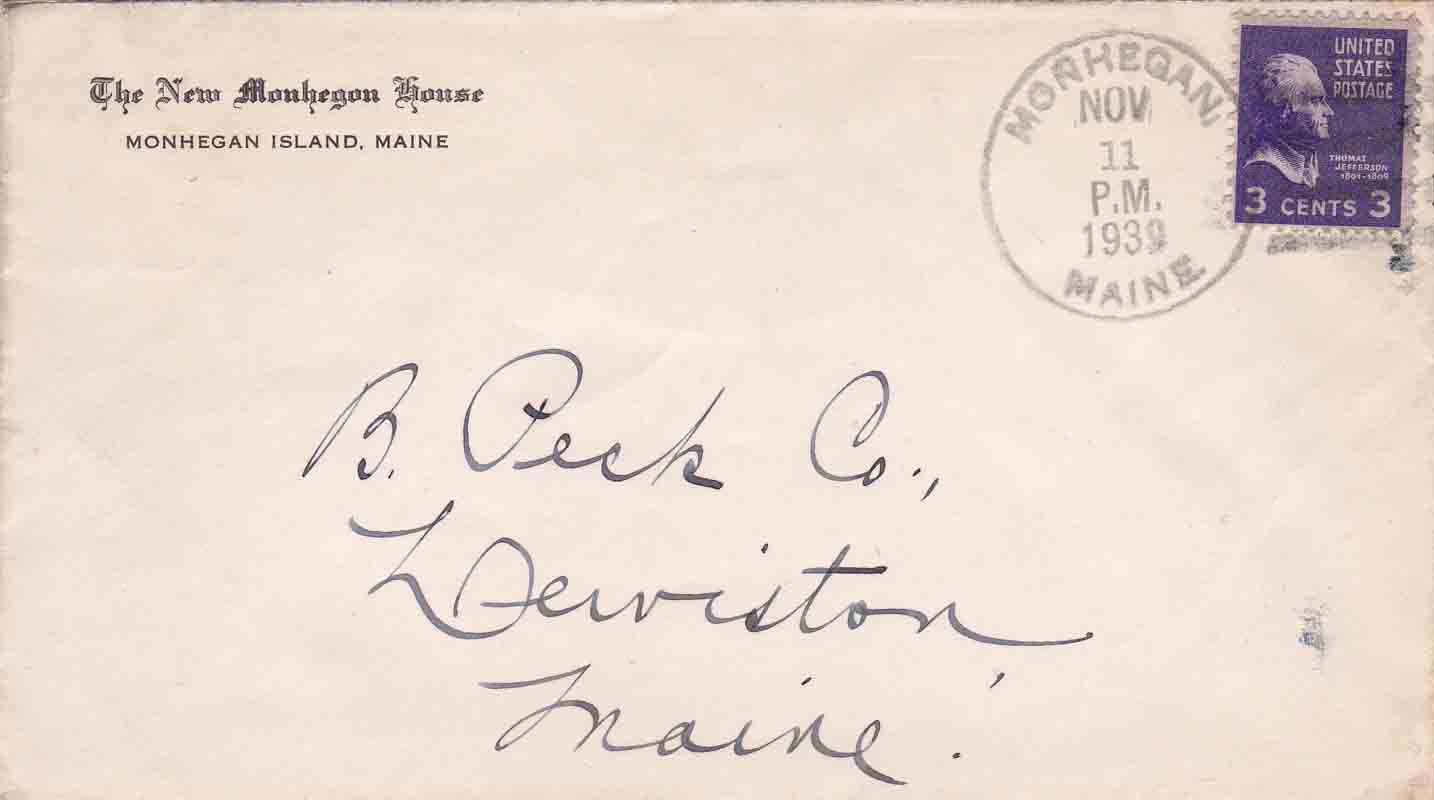 The New Monhegon House
MONHEGAN ISLAND, MAINE
MONHEGAN,
NOV
11
P.M.
1939
MAINE
UNITED
STATES
POSTAGE
THOMAS
JEFFERSON
1801-1809
3 CENTS 3
B. Peck Co.,
Lewiston,
Maine.